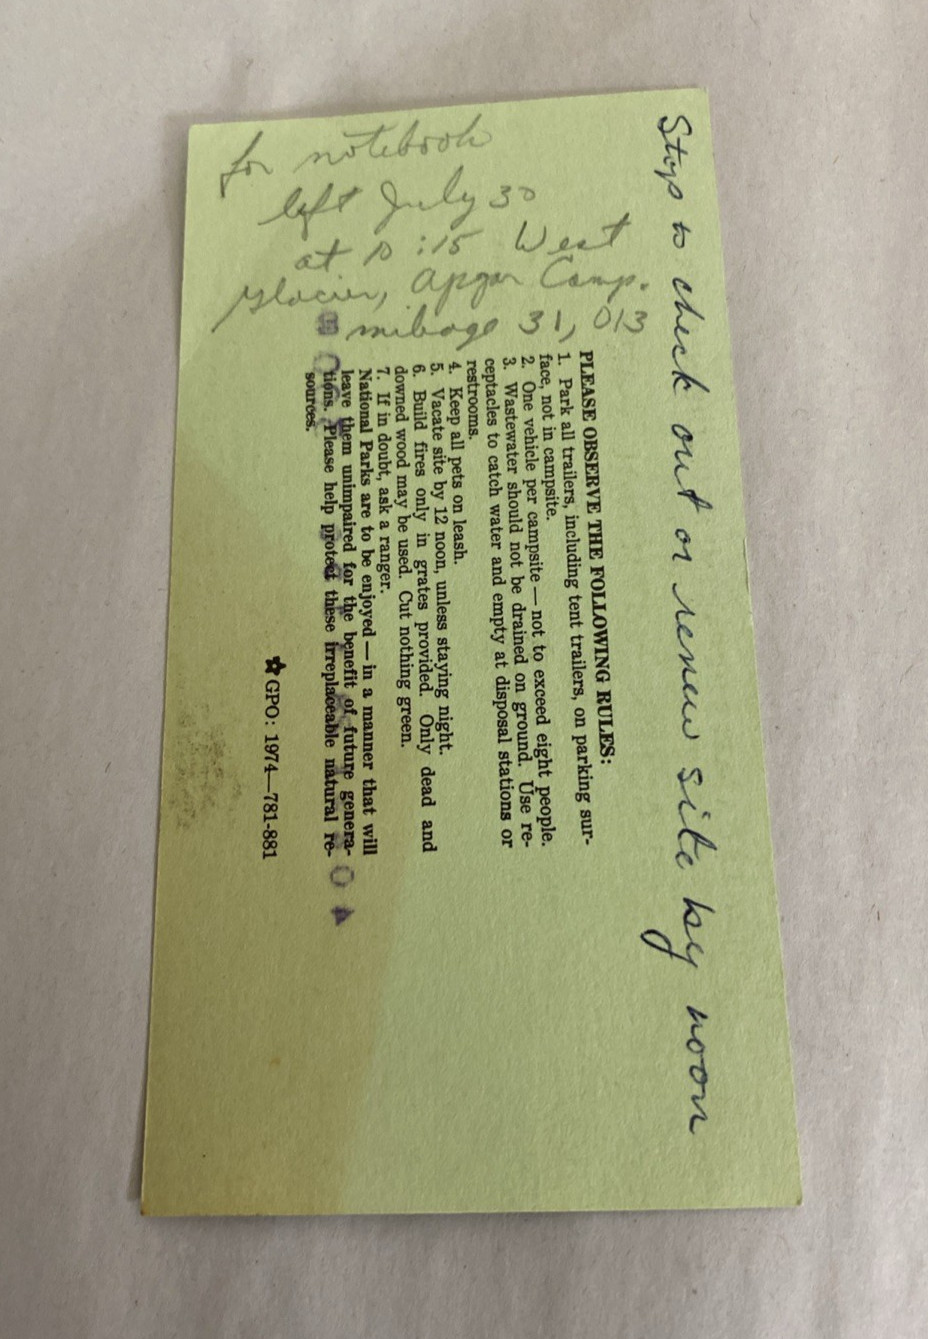 for notebook
left July 30
at 10:15 West
Glacier, Apgar Camp.
mileage 31,013
Stop to check out or renew site by noon
PLEASE OBSERVE THE FOLLOWING RULES:
1. Park all trailers, including tent trailers, on parking sur-
face, not in campsite.
2. One vehicle per campsite — not to exceed eight people.
3. Wastewater should not be drained on ground. Use re-
ceptacles to catch water and empty at disposal stations or
restrooms.
4. Keep all pets on leash.
5. Vacate site by 12 noon, unless staying night.
6. Build fires only in grates provided. Only dead and
downed wood may be used. Cut nothing green.
7. If in doubt, ask a ranger.
National Parks are to be enjoyed — in a manner that will
leave them unimpaired for the benefit of future genera-
tions. Please help protect these irreplaceable natural re-
sources.
☆ GPO: 1974—781-881